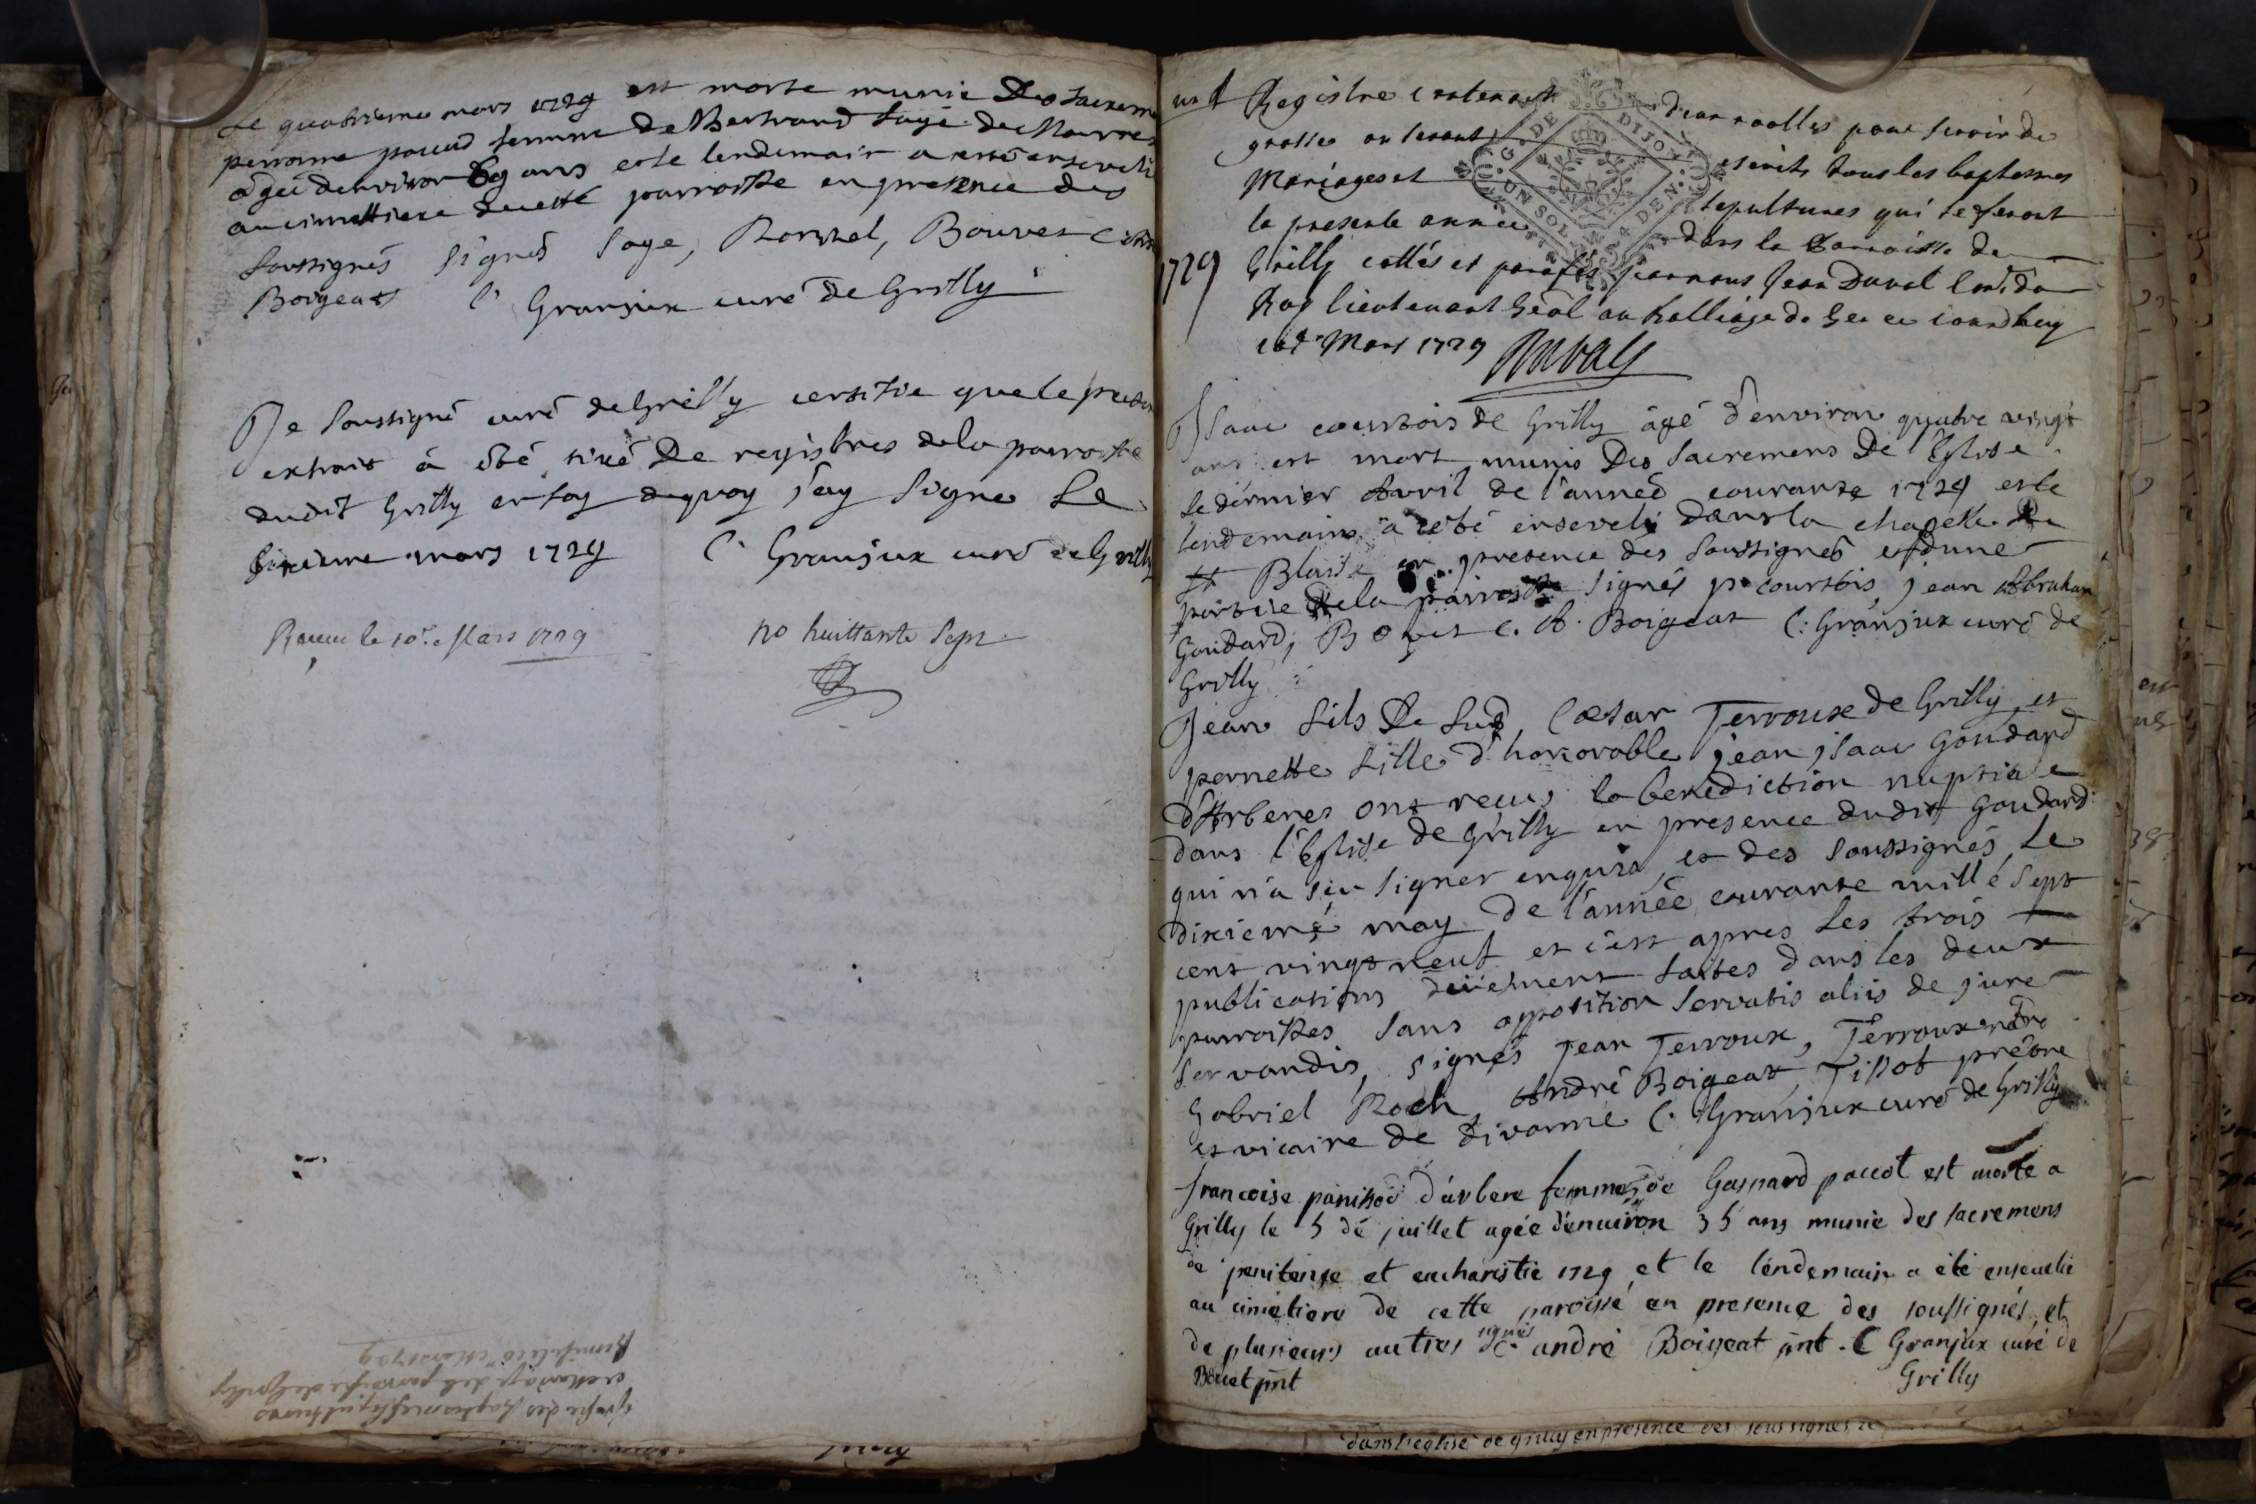 Le quatrieme mars 1729 est morte munie Des sacrem
perronne paccud femme de Bertrand saye de
ageé denviron 69 ans et le lendemain a esté enseveli
au cimettiere de cette parroisse en presence des
soussignés signés Saye, Bouvet
Boigeat C Granjux curé de Grilly
Je soussigné curé de Grilly certifie que le
extrait à êté tiré De registres de la parroisse
dudit Grilly en foy dequoy j'ay signe Le
sixieme mars 1729 C. Granjux curé de Grilly
le 10e. Mars 1729 no huittante sept
Grosse des baptesmes sepultures
et mariage de la paroisse de Grilly
1729
G. DE DIJON
UN SOL 4 DEN.
Registre contenant d'un roolles pour servir de
grosse ou seront escrits tous les baptesmes
Mariages et sepultures qui se feront
la presente année dans la Parroisse de
1729
Grilly cottés et parafés par nous Jean Duval du
Roy lieutenant Gêãl au balliage de Gex ce
Mars 1729 Duval
Isaac courtois de Grilly âgé d'environ quatre vingt
ans est mort munis Des sacremens De l'Eglise
le dernier Avril de l'anneé courante 1729 et le
lendemain a êté enseveli dans la chapelle de
St Blaise en presence des soussignés et d'une
partie de la parroisse signés p. courtois, jean Abraham
Goudard, Bovet C. A. Boigeat C: Granjux curé de
Grilly
Jean fils De Cæsar Terroux de Grilly et
pernette fille d'honorable jean isaac Goudard
d'Arberes ont reçus la benediction nuptiale
dans l'Eglise de Grilly en presence dudit Goudard
qui n'a sçu signer enquis, et des soussignés Le
dixieme may de l'année courante mille sept
cent vingt neuf et c'est apres les trois
publications düement faites dans les deux
parroisses sans opposition servatis aliis de jure
servandis, signés Jean Terroux, Terroux
Gabriel Roch, André Boigeat, Tissot prêtre
et vicaire de divonne C. Granjux curé de Grilly
francoise panissod d'arbere femme de Gaspard paccot est morte a
Grilly le 5 de juillet agée d'enuiron 35 ans munie des sacremens
de penitence et eucharistie 1729 et le lendemain a été enseuelie
au cimetiere de cette paroisse en presence des soussignés, et
de plusieurs autres signés C. andré Boigeat pnt. C Granjux curé de
Bouet pnt Grilly
dans l'eglise de grilly en presence des soussignes le